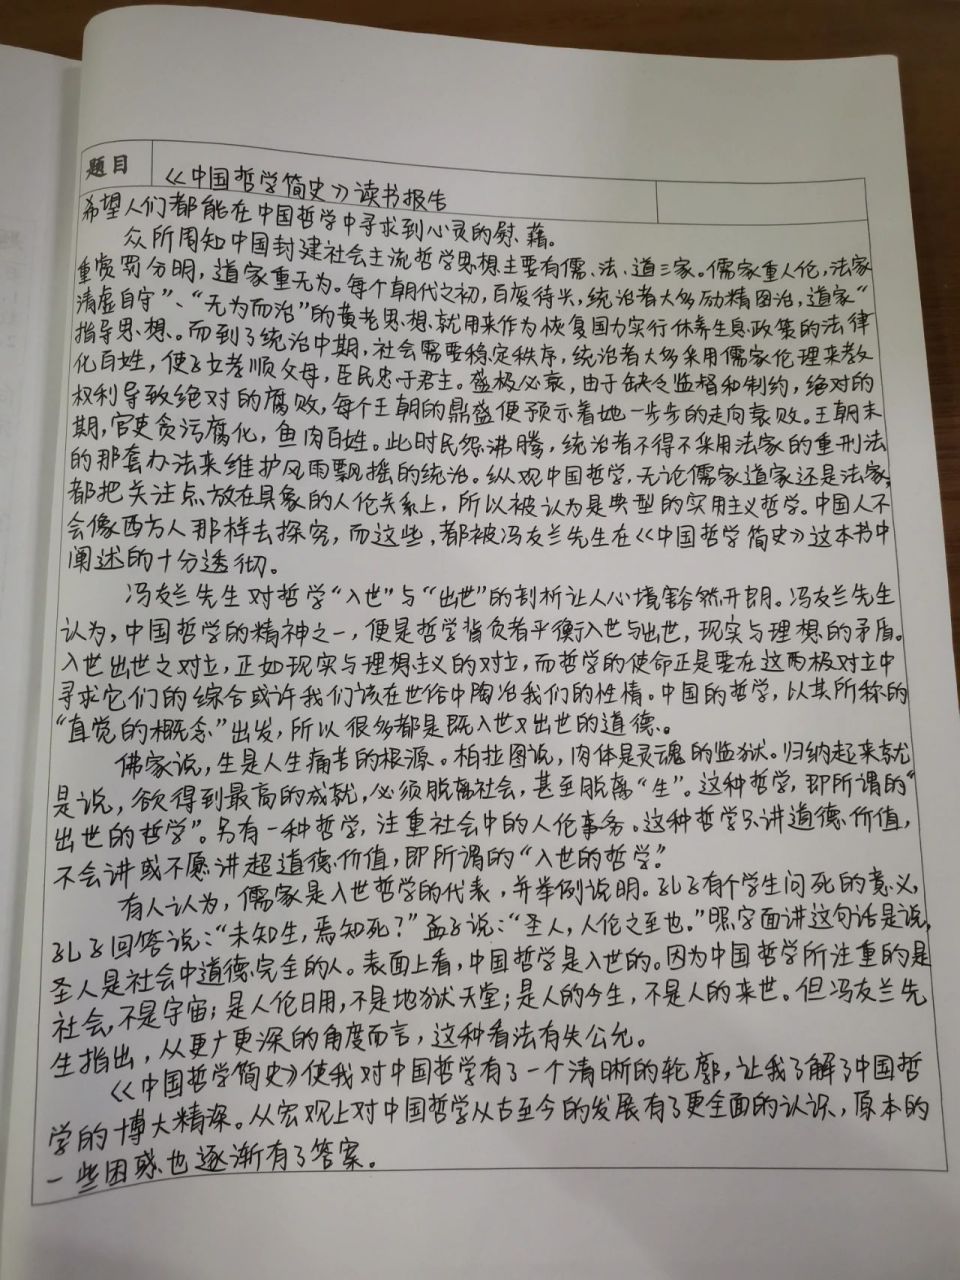 题目
《中国哲学简史》读书报告
希望人们都能在中国哲学中寻求到心灵的慰藉。
众所周知中国封建社会主流哲学思想主要有儒、法、道三家。儒家重人伦,法家
重赏罚分明,道家重无为。每个朝代之初,百废待兴,统治者大多励精图治,道家“
清虚自守”、“无为而治”的黄老思想就用来作为恢复国力实行休养生息政策的法律
指导思想。而到了统治中期,社会需要稳定秩序,统治者大多采用儒家伦理来教
化百姓,使子女孝顺父母,臣民忠于君主。盛极必衰,由于缺乏监督和制约,绝对的
权利导致绝对的腐败,每个王朝的鼎盛便预示着她一步步的走向衰败。王朝末
期,官吏贪污腐化,鱼肉百姓。此时民怨沸腾,统治者不得不采用法家的重刑法
的那套办法来维护风雨飘摇的统治。纵观中国哲学,无论儒家道家还是法家,
都把关注点放在具象的人伦关系上,所以被认为是典型的实用主义哲学。中国人不
会像西方人那样去探究,而这些,都被冯友兰先生在《中国哲学简史》这本书中
阐述的十分透彻。
冯友兰先生对哲学“入世”与“出世”的剖析让人心境豁然开朗。冯友兰先生
认为,中国哲学的精神之一,便是哲学背负者平衡入世与出世,现实与理想的矛盾。
入世出世之对立,正如现实与理想主义的对立,而哲学的使命正是要在这两极对立中
寻求它们的综合或许我们该在世俗中陶冶我们的性情。中国的哲学,以其所称的
“直觉的概念”出发,所以很多都是既入世又出世的道德。
佛家说,生是人生痛苦的根源。柏拉图说,肉体是灵魂的监狱。归纳起来就
是说,欲得到最高的成就,必须脱离社会,甚至脱离“生”。这种哲学,即所谓的“
出世的哲学”。另有一种哲学,注重社会中的人伦事务。这种哲学只讲道德价值,
不会讲或不愿讲超道德价值,即所谓的“入世的哲学”。
有人认为,儒家是入世哲学的代表,并举例说明。孔子有个学生问死的意义,
孔子回答说:“未知生,焉知死?”孟子说:“圣人,人伦之至也。”照字面讲这句话是说,
圣人是社会中道德完全的人。表面上看,中国哲学是入世的。因为中国哲学所注重的是
社会,不是宇宙;是人伦日用,不是地狱天堂;是人的今生,不是人的来世。但冯友兰先
生指出,从更广更深的角度而言,这种看法有失公允。
《中国哲学简史》使我对中国哲学有了一个清晰的轮廓,让我了解了中国哲
学的博大精深。从宏观上对中国哲学从古至今的发展有了更全面的认识,原本的
一些困惑也逐渐有了答案。